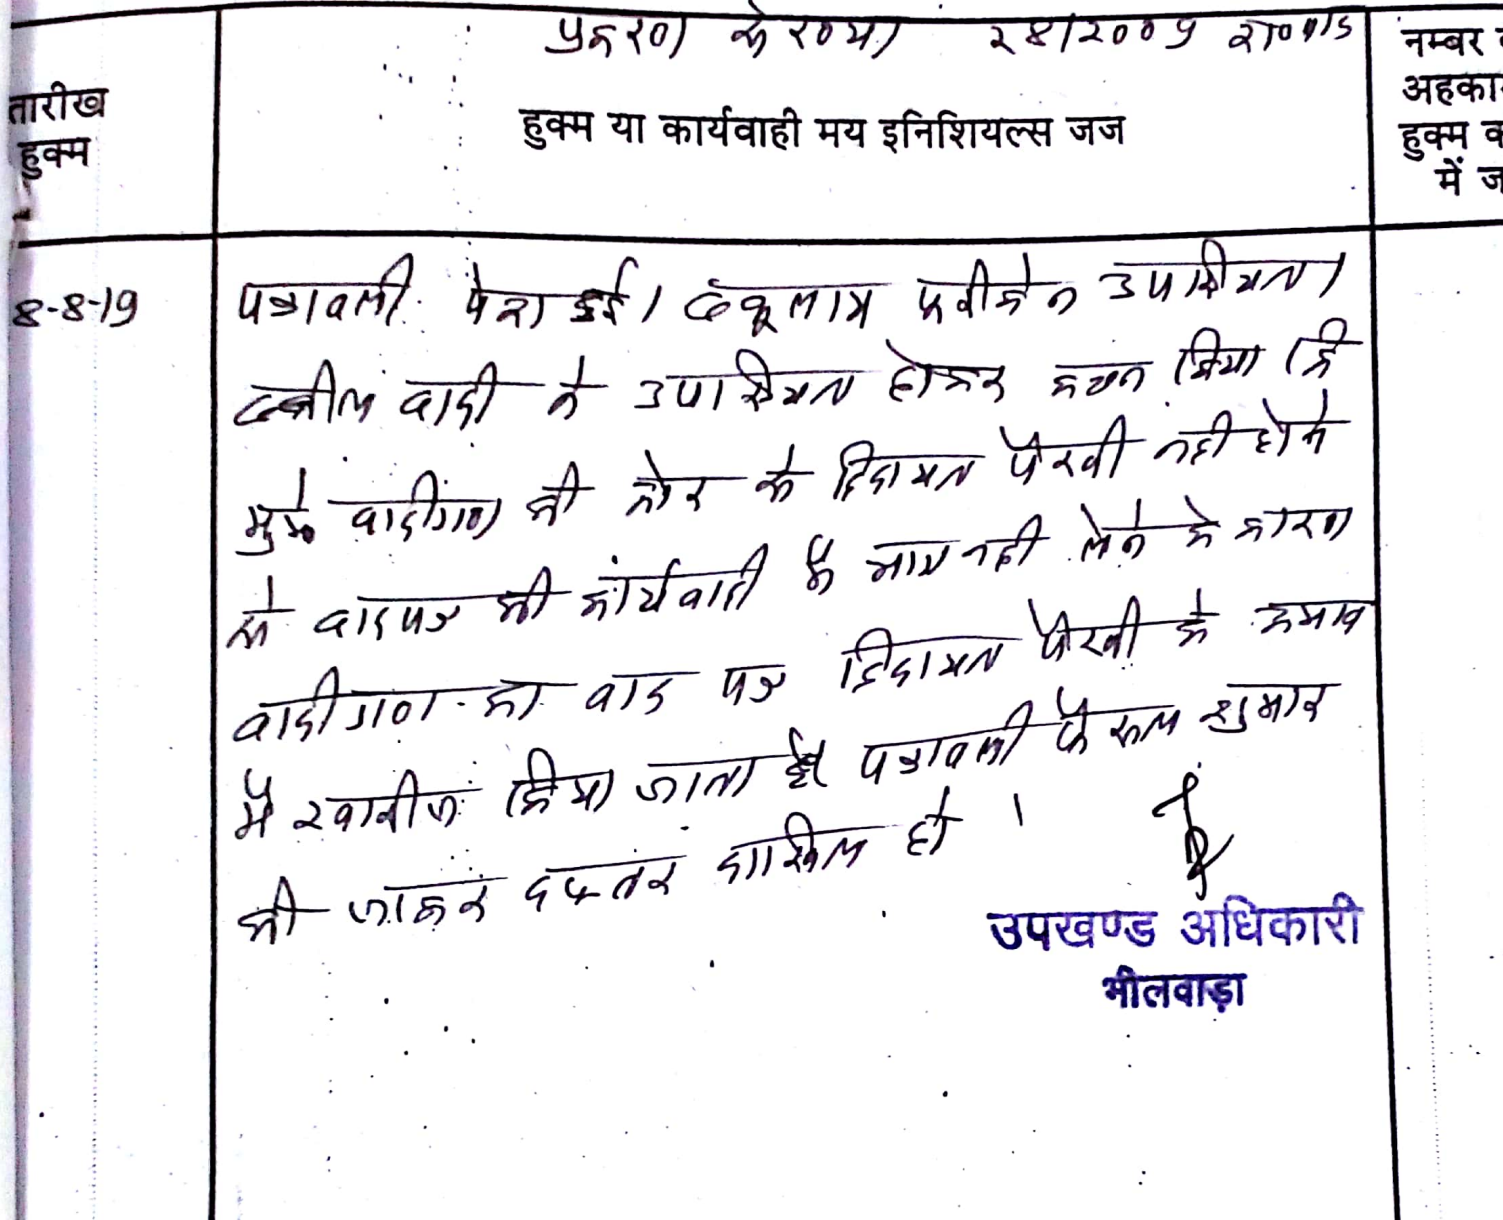 प्रकरण संख्या 28/2009
तारीख
हुक्म
हुक्म या कार्यवाही मय इनिशियल्स जज
नम्बर
अहका
हुक्म
में
8-8-19
पत्रावली पेश हुई। वकूलाय फरीकेन उपस्थित।
वकील वादी ने उपस्थित होकर कथन किया कि
मुझे वादीगण की ओर से हिदायत पैरवी नही होने
से वादपत्र की कार्यवाही में भाग नही लेने के कारण
वादीगण का वाद पत्र हिदायत पैरवी के अभाव
में खारीज किया जाता है पत्रावली फैसल शुमार
की जाकर दफ्तर दाखिल हो ।
उपखण्ड अधिकारी
भीलवाड़ा